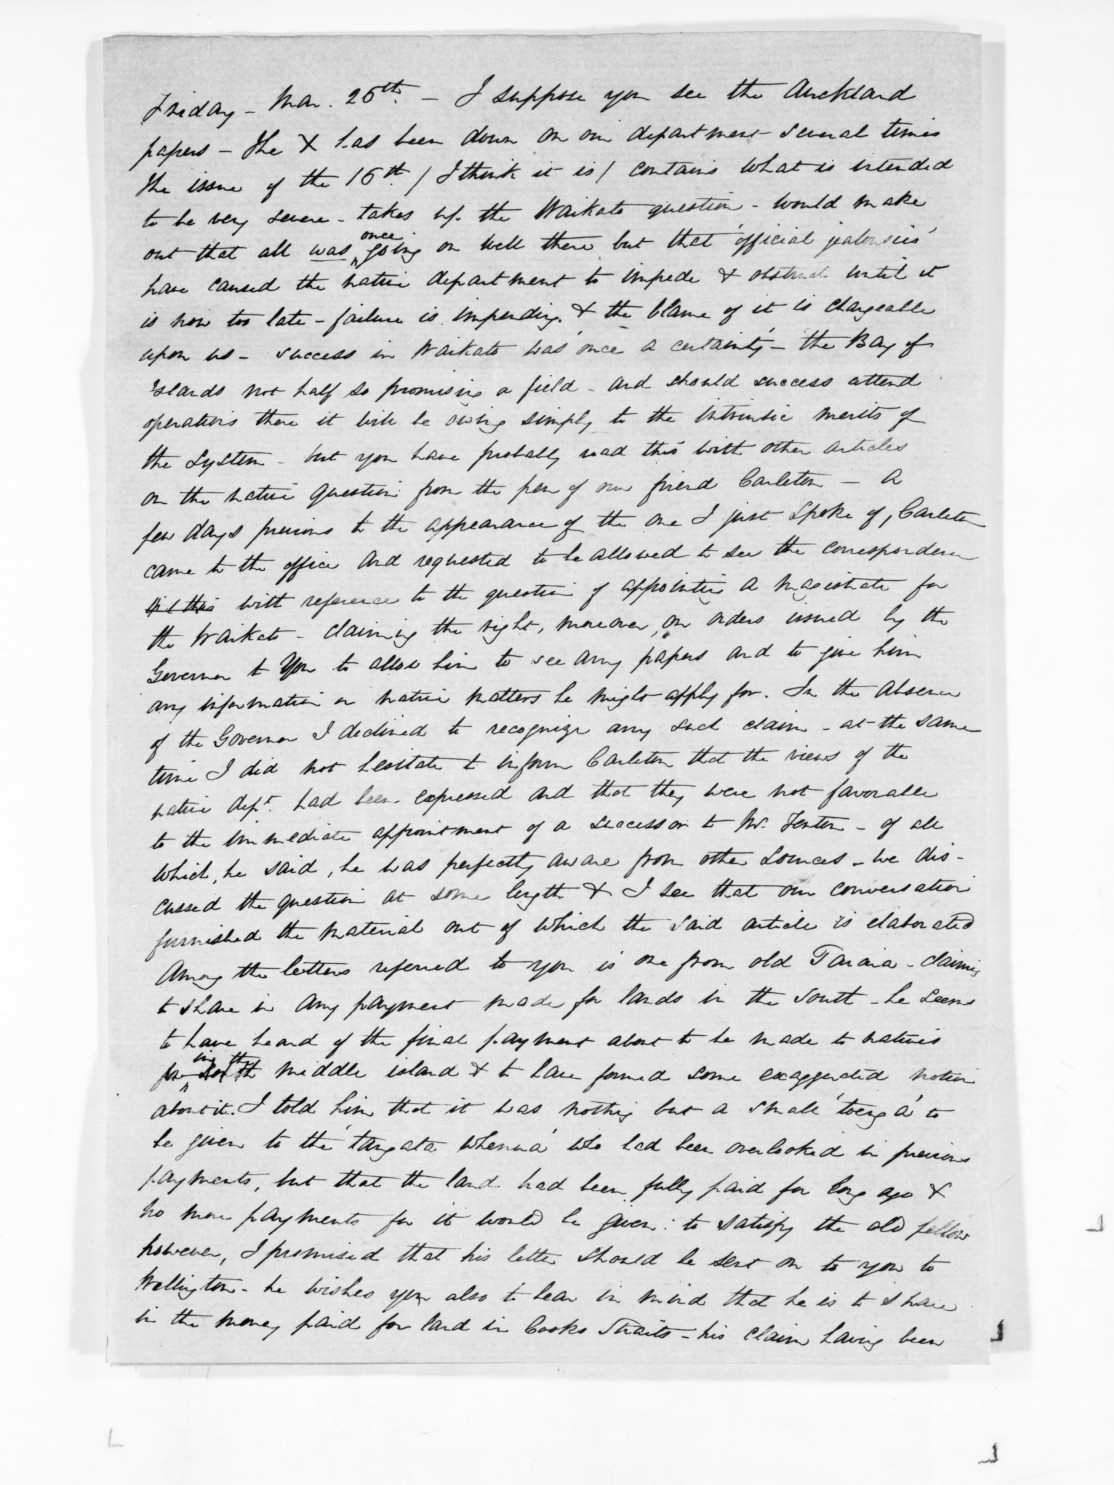 Friday - Mar. 25th. - I suppose you see the Auckland
papers - The X has been down on our department several times
The issue of the 15th. / I think it is / contains what is intended
to be very severe - takes up the Waikato question - would make
out that all was once going on well there but that 'official jealousies'
have caused the native department to impede & obstruct until it
is now too late - failure is impending & the blame of it is chargeable
upon us - success in Waikato was once a certainty - the Bay of
Islands not half so promising a field - and should success attend
operations there it will be owing simply to the intrinsic merits of
the system - but you have probably read this with other articles
on the native question from the pen of our friend Carleton - A
few days previous to the appearance of the one I just spoke of, Carleton
came to the office and requested to be allowed to see the correspondence
with reference to the question of appointing a magistrate for
the Waikato - claiming the right, moreover, on orders issued by the
Governor to you to allow him to see any papers and to give him
any information on native matters he might apply for. In the absence
of the Governor I declined to recognize any such claim - at the same
time I did not hesitate to inform Carleton that the views of the
native dept. had been expressed and that they were not favorable
to the immediate appointment of a successor to Mr. Fenton - of all
which, he said, he was perfectly aware from other sources - we dis-
cussed the question at some length & I see that our conversation
furnished the material out of which the said article is elaborated
Among the letters referred to you is one from old Taraia - claiming
to share in any payment made for lands in the South - he seems
to have heard of the final payment about to be made to natives
in the middle island & to have formed some exaggerated notion
about it. I told him that it was nothing but a small 'toenga' to
be given to the 'tangata whenua' who had been overlooked in previous
payments, but that the land had been fully paid for long ago &
no more payments for it would be given: to satisfy the old fellow
however, I promised that his letter should be sent on to you to
Wellington - he wishes you also to bear in mind that he is to share
in the money paid for land in Cooks Straits - his claim having been